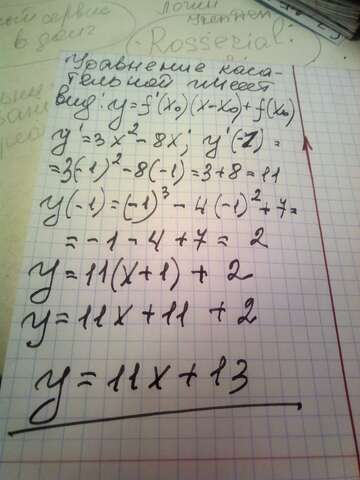 Уравнение каса-
тельной имеет
вид: y=f'(x₀)(x-x₀)+f(x₀)
y'=3x²-8x; y'(-1)=
=3(-1)²-8(-1)=3+8=11
y(-1)=(-1)³-4(-1)²+7=
=-1-4+7=2
y=11(x+1)+2
y=11x+11+2
y=11x+13
Rosserial